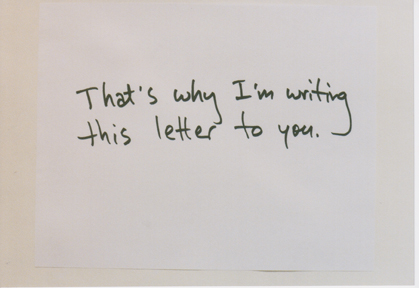 That's why I'm writing
this letter to you.